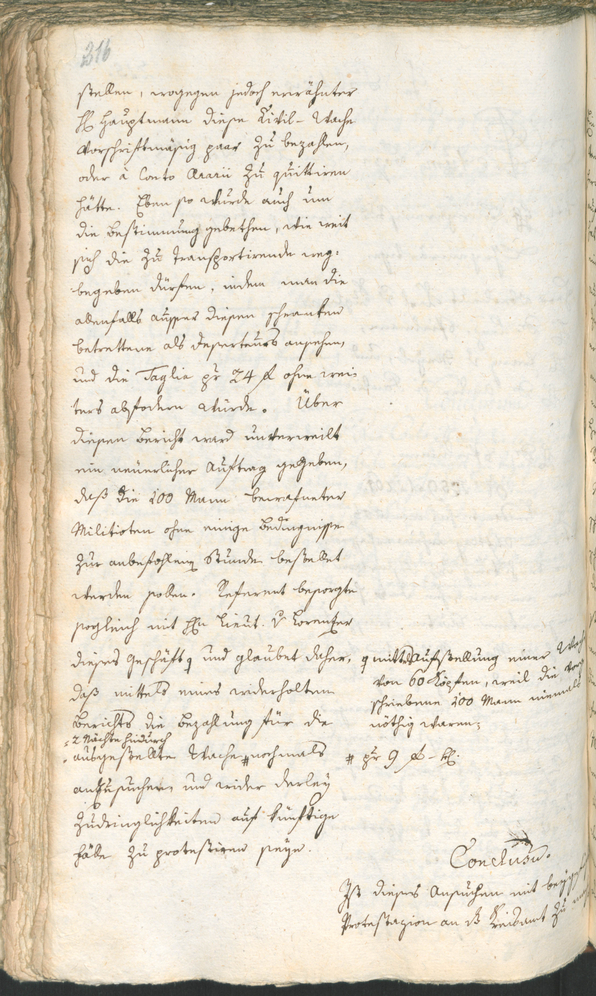 316
stellen, wogegen jedoch erwähnter
H. Hauptmann diese Civil-Wache
Vorschriftmäsig paar zu bezahlen,
oder à Conto Aerarii zu quittiren
hätte. Eben so wurde auch um
die Bestimmung gebethen, wie weit
sich die zu Transportirende weg-
begeben dürfen, indem man die
allenfalls ausser diesen schranken
betrettene als Deserteurs ansehen,
und die Taglia pr 24 f ohne wei-
ters abfodern würde. Über
diesen Bericht ward unverweilt
ein neuerlicher Auftrag gegeben,
daß die 100 Mann bewafneter
Militioten ohne einige Bedingnisse
zur anbefohlenen Stunde bestellet
werden sollen. Referent besorgte
sogleich mit H. Lieut. v Lorentzer
dieses Geschäft und glaubet daher,
daß mittels eines widerholten
Berichts die Bezahlung für die
2 Nächte hindurch
ausgestellte Wache nochmals
anzusuchen, und wider derley
Zudringlichkeiten auf künftige
Fälle zu protestiren seye.
mittls Aufstellung einer Wach
von 60 Köpfen, weil die
schriebene 100 Mann niemals
nöthig waren;
# pr 9 f – x.
Conclusum.
Ist dieses Ansuchen mit
Protestazion an das Kreisamt zu